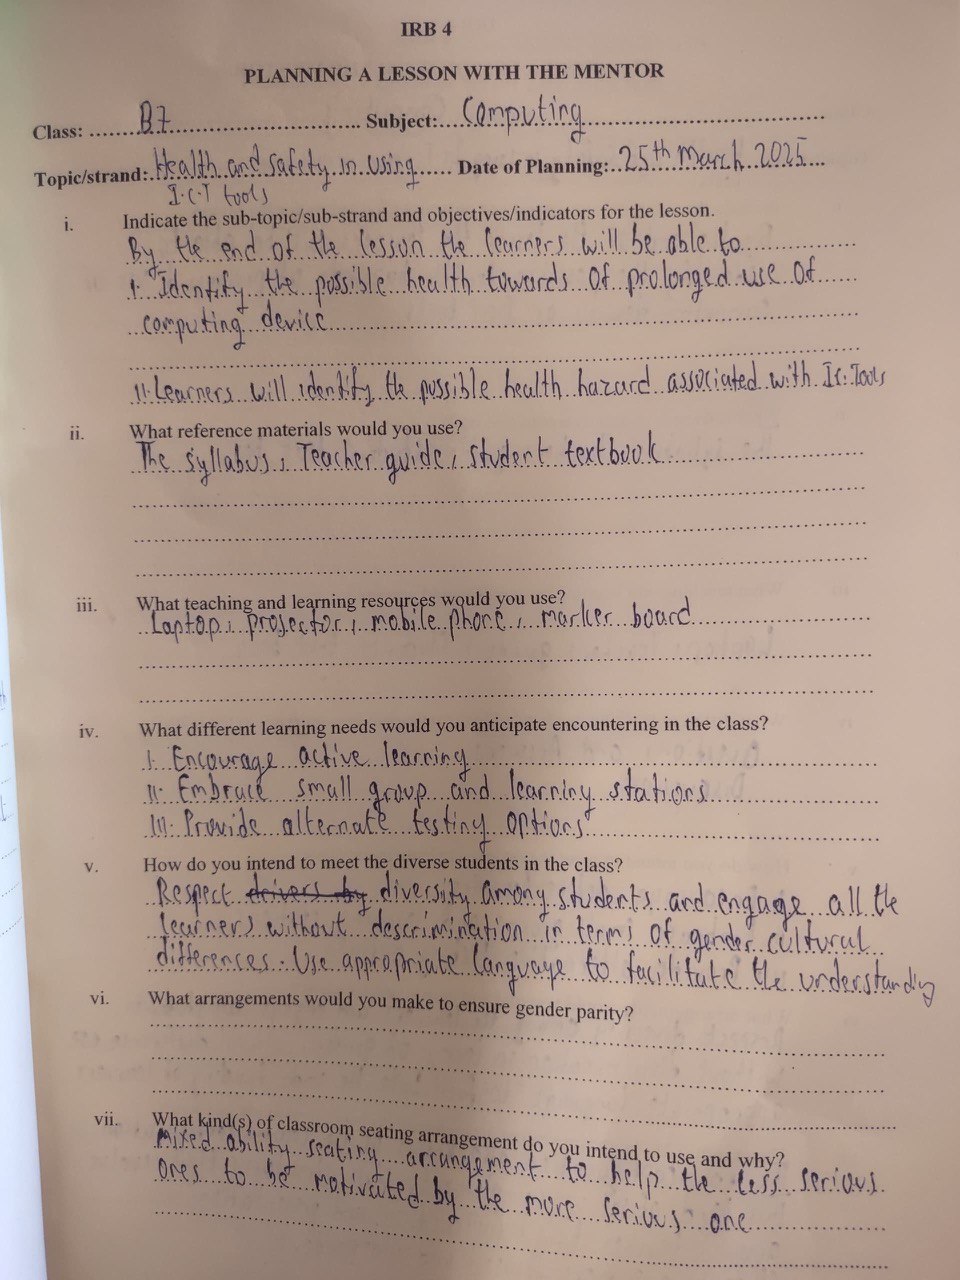 IRB 4
PLANNING A LESSON WITH THE MENTOR
Class: ......B7.......................... Subject:....Computing..........................
Topic/strand:.Health and safety in using..... Date of Planning:..25th March 2025...
I.C.T tools
i. Indicate the sub-topic/sub-strand and objectives/indicators for the lesson.
By the end of the lesson the learners will be able to
1. Identify the possible health towards of prolonged use of
computing device
11. Learners will identify the possible health hazard associated with Ic. Tools
ii. What reference materials would you use?
The syllabus, Teacher guide, student textbook
iii. What teaching and learning resources would you use?
Laptop, projector, mobile phone, marker board
iv. What different learning needs would you anticipate encountering in the class?
I. Encourage active learning
II. Embrace small group and learning stations
III. Provide alternate testing options
v. How do you intend to meet the diverse students in the class?
Respect drivers by diversity among students and engage all the
learners without descrimination in terms of gender cultural
differences. Use appropriate language to facilitate the understanding
vi. What arrangements would you make to ensure gender parity?
vii. What kind(s) of classroom seating arrangement do you intend to use and why?
Mixed ability seating arrangement to help the less serious
ones to be motivated by the more serious one